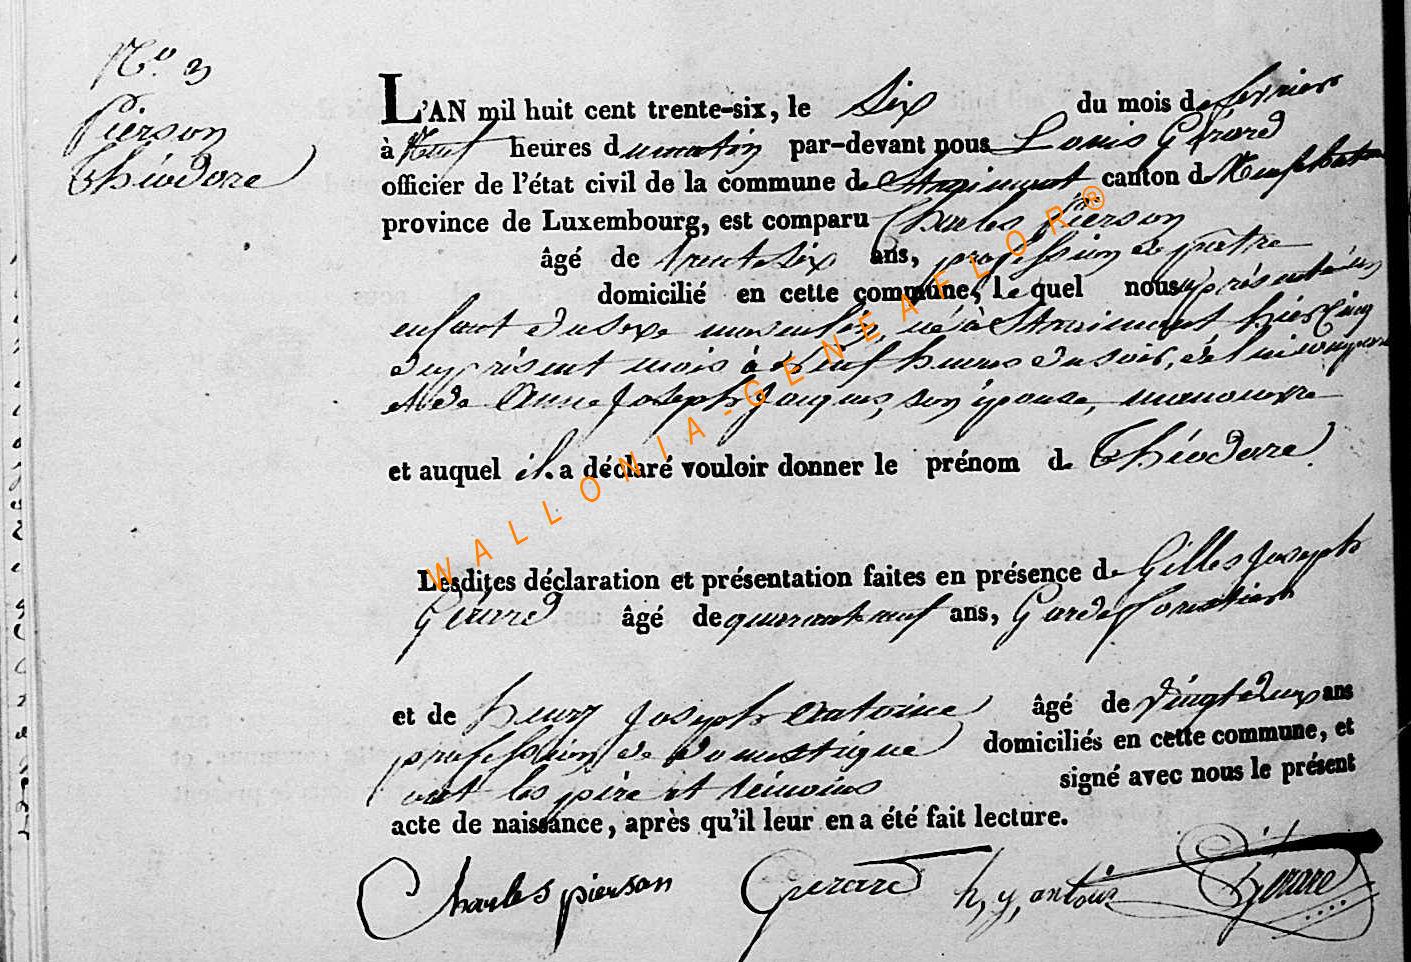 N.o 3
Pierson
Théodore
L'AN mil huit cent trente-six, le Six du mois de fevrier
à Neuf heures du matin par-devant nous Louis Gérard
officier de l'état civil de la commune de Straimont canton de Neufchateau
province de Luxembourg, est comparu Charles Pierson
âgé de trente Six ans, profession de
domicilié en cette commune, le quel nous a présenté un
enfant du sexe masculin, né à Straimont hier Cinq
du présent mois à neuf heures du soir, de lui comparant
et de Anne Joseph Jacques, son épouse, manouvre
et auquel il a déclaré vouloir donner le prénom de Théodore
Lesdites déclaration et présentation faites en présence de Gilles Joseph
Gérard âgé de quarante neuf ans, Garde forestier
et de henry Joseph Antoine âgé de Vingt deux ans
profession de domestique domiciliés en cette commune, et
ont les père et témoins signé avec nous le présent
acte de naissance, après qu'il leur en a été fait lecture.
Charles pierson Gerard h, y, antoin Gérard
WALLONIA-GENEAFLOR®